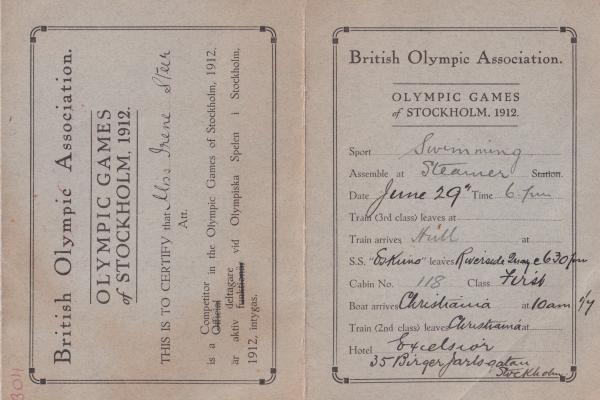 British Olympic Association.
OLYMPIC GAMES
of STOCKHOLM, 1912.
THIS IS TO CERTIFY that Miss Irene Steer
Att.
Competitor
is a Official in the Olympic Games of Stockholm, 1912.
deltagare
är aktiv funktionär vid Olympiska Spelen i Stockholm,
1912, intygas.
304
British Olympic Association.
OLYMPIC GAMES
of STOCKHOLM, 1912.
Sport Swimming
Assemble at Steamer Station.
Date June 29th Time 6. pm
Train (3rd class) leaves at
Train arrives Hull at
S.S. "Eskimo" leaves Riverside Quay @ 630 pm
Cabin No. 118 Class First
Boat arrives Christiania at 10am 1/7
Train (2nd class) leaves Christiania at
Hotel Excelsior
35 Birger Jarlsgatan
Stockholm